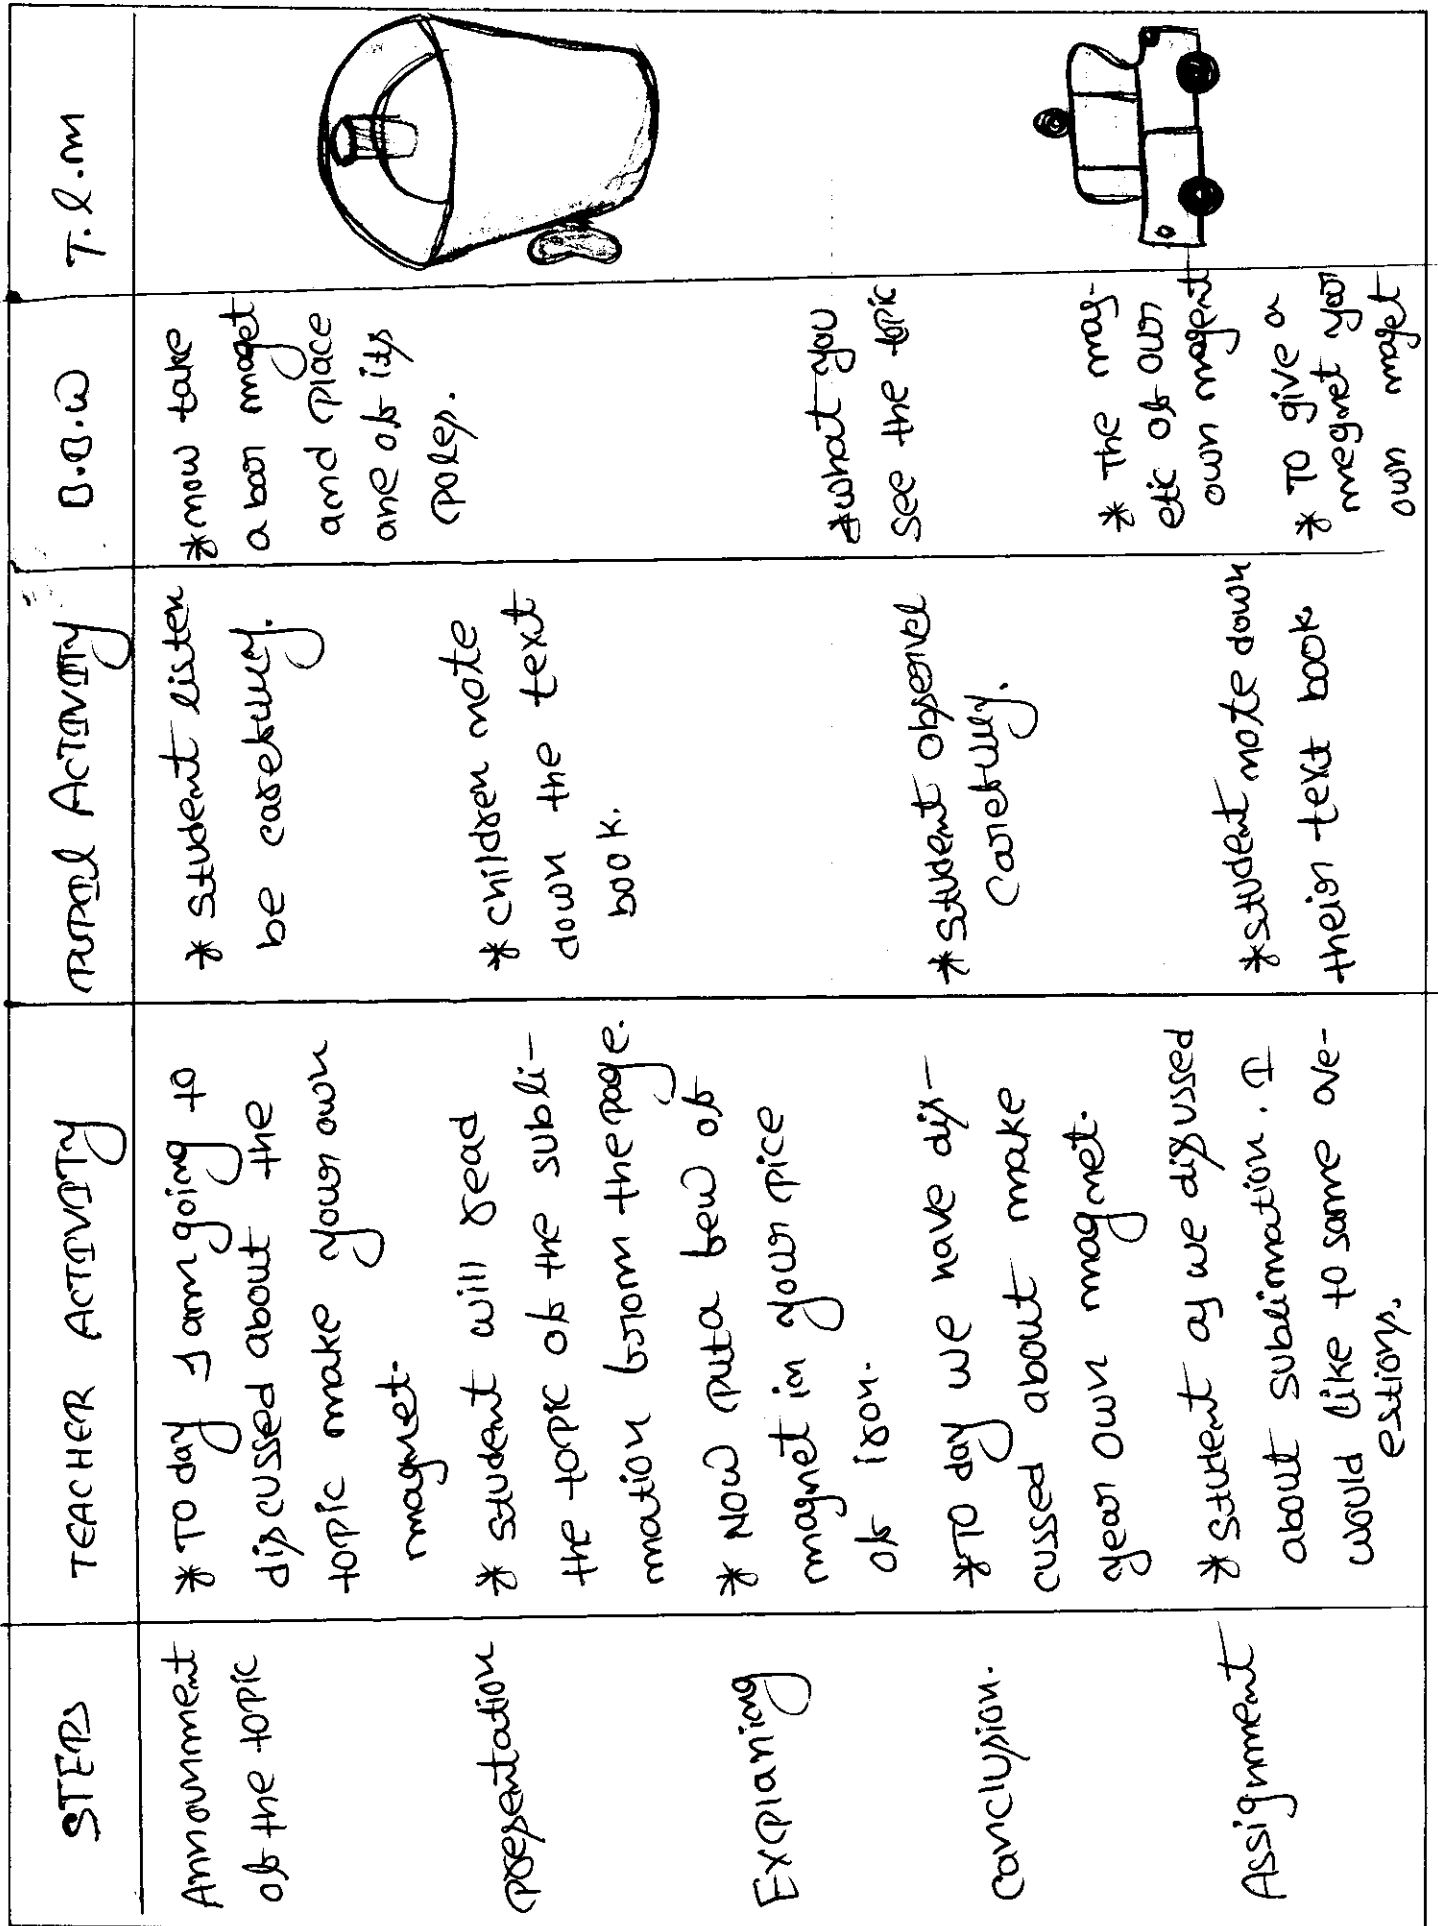 STEPS
TEACHER ACTIVITY
PUPIL ACTIVITY
B.B.W
T.l.m
Announment
of the topic
* TO day I am going to
discussed about the
topic make your own
magnet.
* student listen
be carefully.
* now take
a bar maget
and place
one of its
poles.
presentation
* student will read
the topic of the subli-
mation from the page.
* children note
down the text
book.
Explaning
* Now put a few of
magnet in your pice
of iron.
* what you
see the topic
conclusion.
* TO day we have dis-
cussed about make
year own magnet.
* student observel
carefully.
* The mag-
etic of our
own magent
Assignment
* student as we disussed
about sublimation. I
would like to some ove-
estions.
* student note down
their text book.
* TO give a
megnet your
own maget